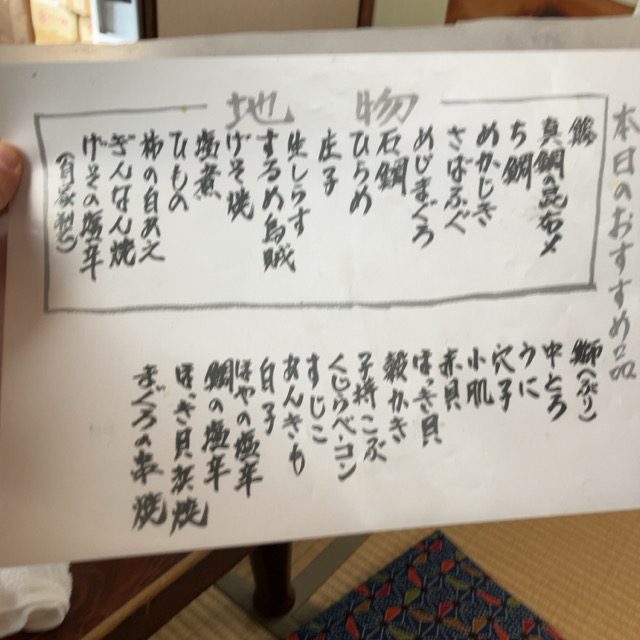 本日のおすすめ品
地物
真鯛昆布〆
ち鯛
めかじき
さばふぐ
めじまぐろ
石鯛
ひらめ
生しらす
するめ烏賊
げそ焼
塩煮
ひもの
柿の白あえ
ぎんなん焼
げその塩辛
(自家製)
鰤(ぶり)
中とろ
うに
穴子
小肌
赤貝
ほっき貝
殻かき
子持こぶ
くじらベーコン
すじこ
あんきも
白子
ほやの塩辛
鯛の塩辛
ほっき貝炭焼
まぐろの串焼